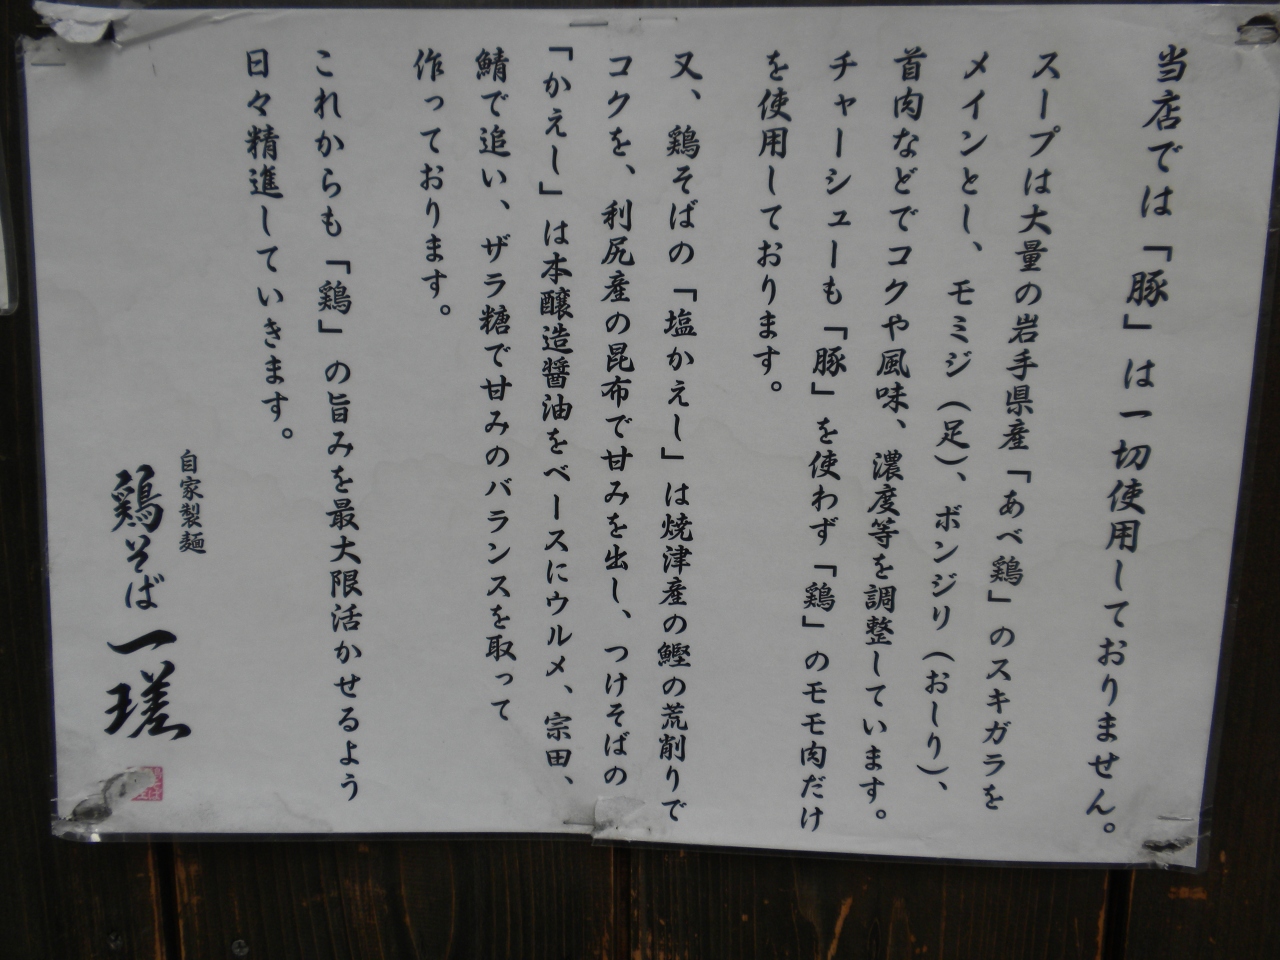 当店では「豚」は一切使用しておりません。
スープは大量の岩手県産「あべ鶏」のスキガラを
メインとし、モミジ（足）、ボンジリ（おしり）、
首肉などでコクや風味、濃度等を調整しています。
チャーシューも「豚」を使わず「鶏」のモモ肉だけ
を使用しております。
又、鶏そばの「塩かえし」は焼津産の鰹の荒削りで
コクを、利尻産の昆布で甘みを出し、つけそばの
「かえし」は本醸造醤油をベースにウルメ、宗田、
鯖で追い、ザラ糖で甘みのバランスを取って
作っております。
これからも「鶏」の旨みを最大限活かせるよう
日々精進していきます。
自家製麺
鶏そば 一瑳